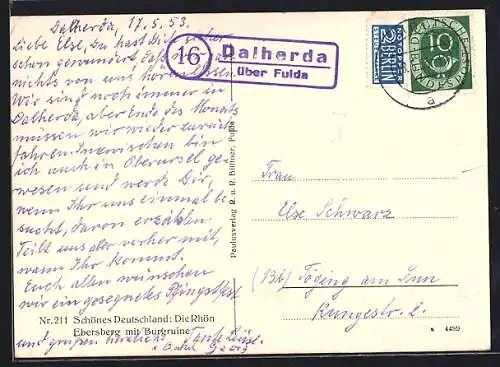 Dalherda, 17.5.53.
Liebe Else, Du hast Dich sicher
schon gewundert, daß wir gar
nichts von uns hören lassen.
Wir sind noch immer in
Dalherda, aber Ende des Monats
müssen wir wieder zurück
fahren. Inzwischen bin
ich auch in Oberursel ge-
wesen und werde Dir,
wenn Ihr uns einmal be-
sucht, davon erzählen.
Teilt uns aber vorher mit,
wann Ihr kommt.
Euch allen wünschen
wir ein gesegnetes Pfingstfest
und grüßen herzlichst Tante Liesel
u. Onkel Georg
Nr. 211 Schönes Deutschland: Die Rhön
Ebersberg mit Burgruine
Paulusverlag R. u. R. Bittner, Fulda
16
Dalherda
über Fulda
2
NOTOPFER
BERLIN
STEUERMARKE
DEUTSCHE
BUNDESPOST
10
a
Frau
Else Schwarz
(13b) Töging am Inn
Rungestr. 2.
4489